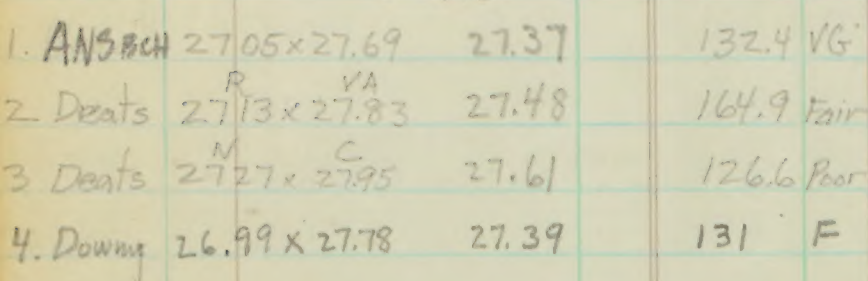 1. ANSBCH 27 05 x 27.69 27.37 132.4 VG
R VA
2 Deats 27 13 x 27.83 27.48 164.9 Fair
N C
3 Deats 27 27 x 27.95 27.61 126.6 Poor
4. Downy 26.99 x 27.78 27.39 131 F